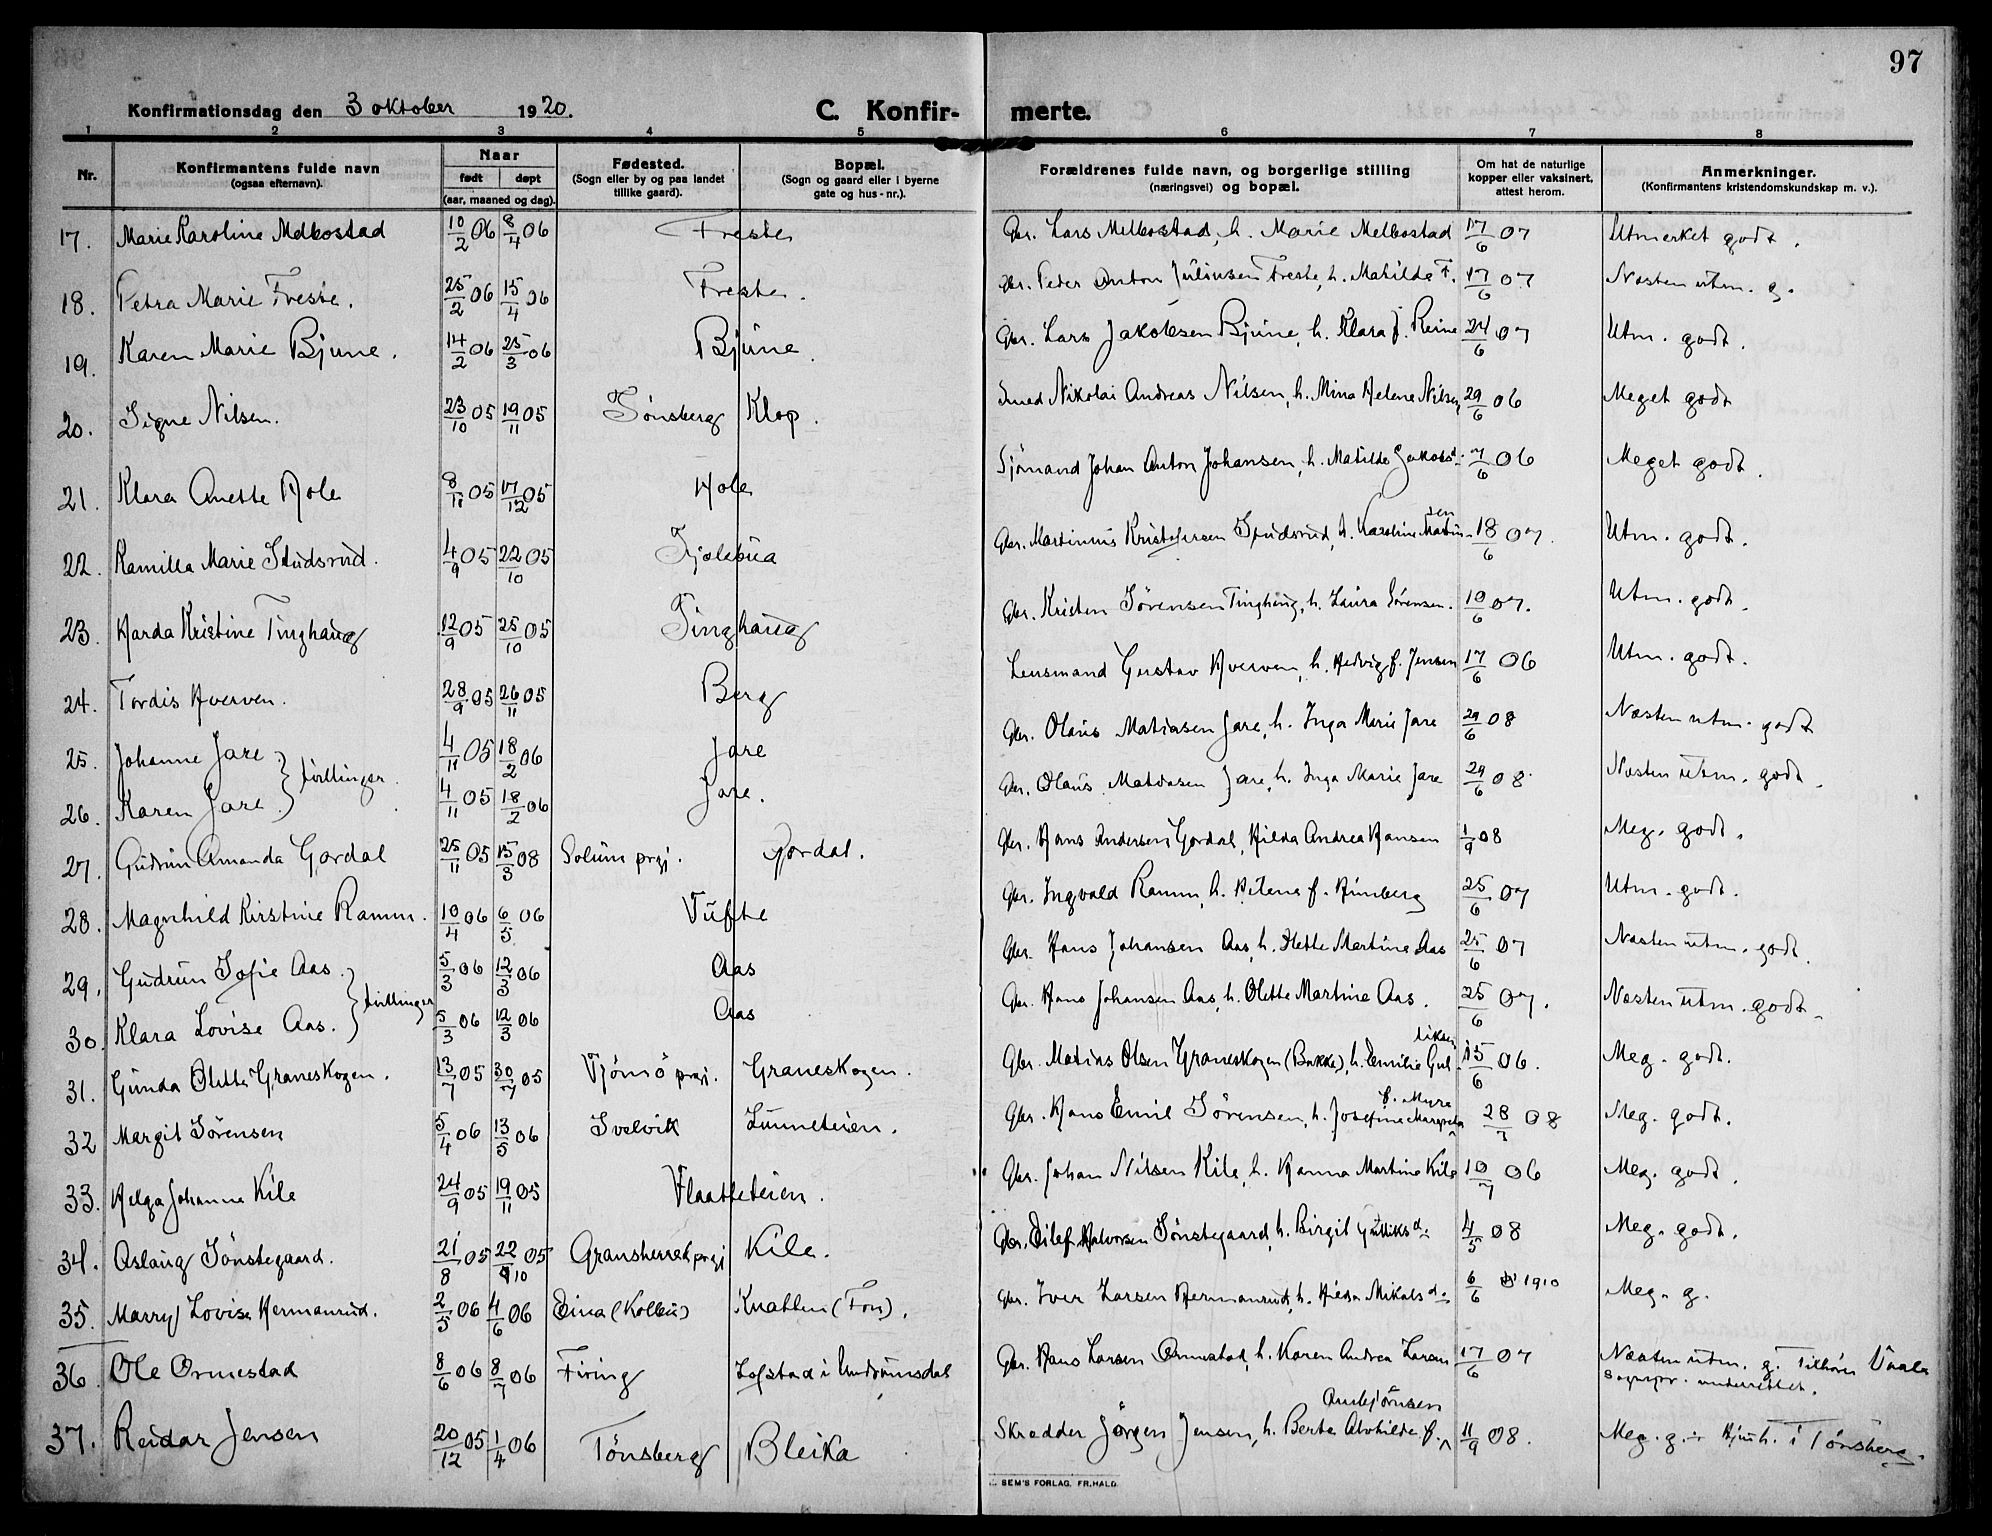 97
Konfirmationsdag den 3 oktober 1920.
C. Konfir- merte.
1 2 3 4 5 6 7 8
Nr. Konfirmantens fulde navn (ogsaa efternavn). Naar født døpt (aar, maaned og dag). Fødested. (Sogn eller by og paa landet tillike gaard). Bopæl. (Sogn og gaard eller i byerne gate og hus-nr.). Forældrenes fulde navn, og borgerlige stilling (næringsvei) og bopæl. Om hat de naturlige kopper eller vaksinert, attest herom. Anmerkninger. (Konfirmantens kristendomskundskap m. v.).
17. Marie Karoline Melbostad 10/2 06 8/4 06 Freste Gbr. Lars Melbostad, h. Marie Melbostad 17/6 07 Utmerket godt.
18. Petra Marie Freste. 25/2 06 15/4 06 Freste. Gbr. Peter Anton Juliusen Freste, h. Matilde F. 17/6 07 Næsten utm. g.
19. Karen Marie Bjune. 14/2 06 25/3 06 Bjune. Gbr. Lars Jakobsen Bjune, h. Klara f. Reine 24/6 07 Utm. godt.
20. Signe Nilsen. 23/10 05 19/11 05 Tønsberg Klop. Smed Nikolai Andreas Nilsen, h. Mina Helene Nilsen 29/6 06 Meget godt
21. Klara Anette Hole 8/11 05 17/12 05 Hole Sjømand Johan Anton Johansen, h. Matilde Jakobsd. 7/6 06 Meget godt.
22. Kamilla Marie Studsrud. 4/9 05 22/10 05 Fjælebua Gbr. Martinius Kristofersen Studsrud, h. Karoline Martinsen 18/6 07. Utm. godt.
23. Harda Kristine Tinghaug 12/9 05 25/10 05 Tinghaug Gbr. Kristen Sørensen Tinghaug, h. Laura Sørensen. 10/6 07. Utm. godt.
24. Tordis Hverven. 28/9 05 26/11 05 Berg Lensmand Gustav Hverven, h. Hedvig f. Jensen 17/6 06 Utm. godt.
25. Johanne Jare. } tvillinger. 4/11 05 18/2 06 Jare Gbr. Olaus Matiasen Jare, h. Inga Marie Jare 29/6 08 Næsten utm. godt
26. Karen Jare. 4/11 05 18/2 06 Jare. Gbr. Olaus Matiasen Jare, h. Inga Marie Jare 29/6 08. Næsten utm. godt.
27. Gudrun Amanda Gordal 25/11 05 15/3 08 Solum prgj. Gordal. Gbr. Hans Andersen Gordal, Hilda Andrea Hansen 1/9 08 Meg. godt.
28. Magnhild Kirstine Ramm. 10/4 06 6/5 06 Tufte Gbr. Ingvald Ramm, h. Helene f. Himberg 25/6 07 Utm. godt.
29. Gudrun Sofie Aas. } tvillinger 5/3 06 12/3 06 Aas Gbr. Hans Johansen Aas, h. Olette Martine Aas 25/6 07 Næsten utm. godt.
30. Klara Lovise Aas. 5/3 06 12/3 06 Aas Gbr. Hans Johansen Aas, h. Olette Martine Aas. 25/6 07. Næsten utm. godt.
31. Gunda Olette Graneskogen. 13/7 05 30/7 05 Tjømø prgj. Graneskogen. Gbr. Matias Olsen Graneskogen (Bakke), h. Emilie Gulliksen 15/6 06. Meg. godt.
32 Margit Sørensen 5/4 06 13/5 06 Svelvik Lunneteien. Gbr. Hans Emil Sørensen, h. Josefine Margreta f. Myre 28/7 08 Meg. godt.
33. Helga Johanne Kile 24/9 05 19/11 05 Flaatteteien. Gbr. Johan Nilsen Kile, h. Hanna Martine Kile 10/7 06 Meg. godt.
34. Aslaug Sønstegaard. 21/8 05 22/10 05 Gransherred prgj Kile. Gbr. Eilef Halvorsen Sønstegaard, h. Birgit Gulliksd. 4/5 08 Meg. godt.
35. Marry Lovise Hermanrud. 2/5 06 4/6 06 Eina (Kolbu) Knatten (Fon). Gbr. Iver Larsen Hermanrud, h. Hilda Mikalsd. 6/6 1910 Meg. g.
36. Ole Ormestad 8/6 06 8/7 06 Firing Lofstad i Undrumsdal Gbr. Hans Larsen Ormestad, h. Karen Andrea Larsen 17/6 07 Næsten utm. g. Tilhører Vaale
Sognepr. underrettet.
37. Reidar Jensen 20/12 05 1/4 06 Tønsberg Bleika Skredder Jørgen Jensen, h. Berte Alvhilde f. Anbjørnsen 11/9 08. Meg. g. Hjemh. i Tønsberg.
SEM'S FORLAG, FR.HALD.